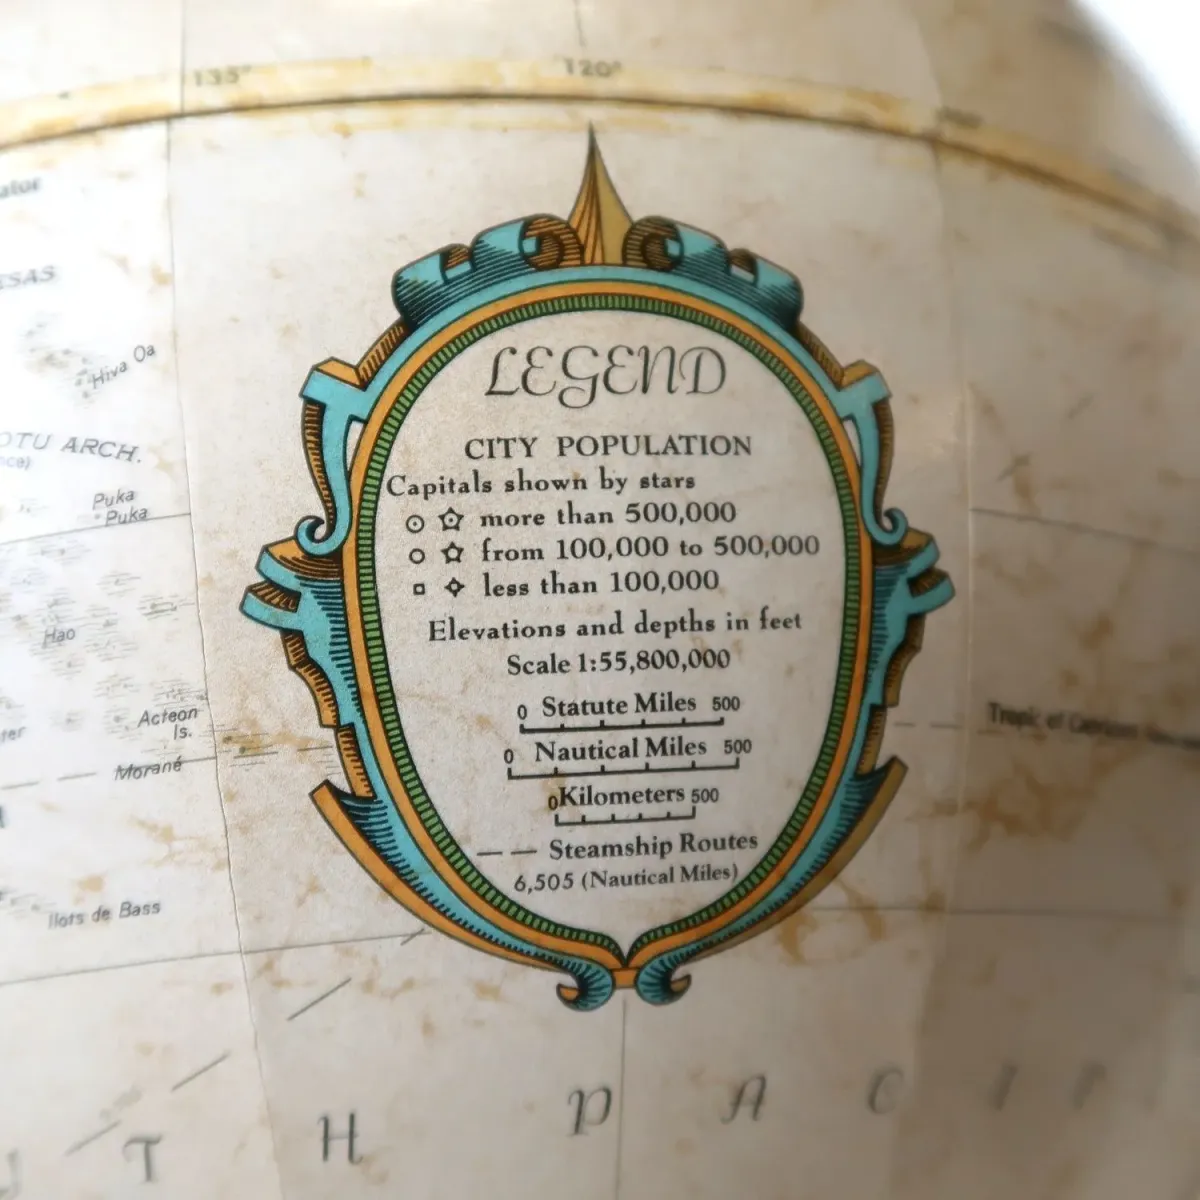 135° 120°
Hiva Oa
OTU ARCH.
LEGEND
CITY POPULATION
Capitals shown by stars
more than 500,000
from 100,000 to 500,000
less than 100,000
Elevations and depths in feet
Scale 1:55,800,000
0 Statute Miles 500
0 Nautical Miles 500
0 Kilometers 500
Steamship Routes
6,505 (Nautical Miles)
Puka
Puka
Hao
Acteon
Is.
Morané
Tropic of Capricorn
Ilots de Bass
U T H P A C I F